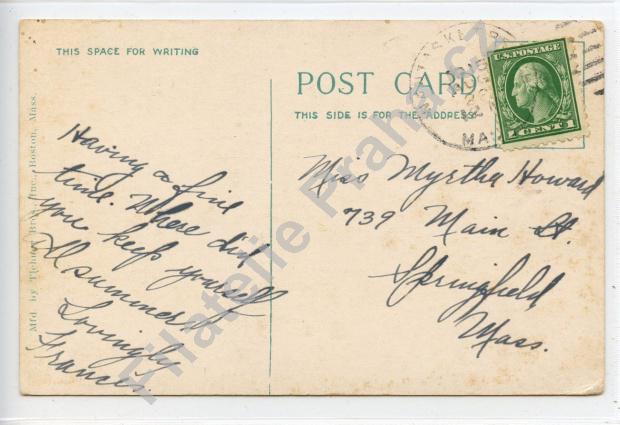 THIS SPACE FOR WRITING
POST CARD
THIS SIDE IS FOR THE ADDRESS
U.S. POSTAGE
1 CENT 1
MAS
Mfd. by Tichnor Bros., Inc., Boston, Mass.
Having a fine
time. Where did
you keep yourself
all summer?
Lovingly
Frances.
Miss Myrtha Howard
739 Main St.
Springfield
Mass.
Filatelie Praha.cz